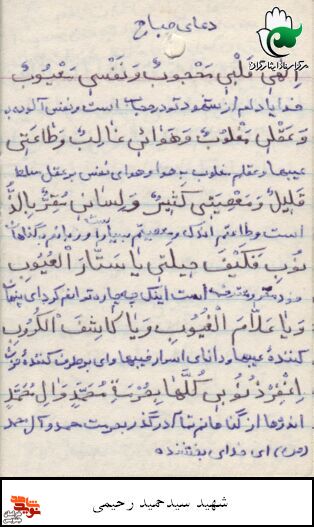 دعای صباح
اِلهی قَلْبی مَحْجُوبٌ وَنَفْسی مَعْیُوبٌ
خدایا دلم از شهود تو در حجاب است و نفس آلوده به
وَعَقْلی مَغْلُوبٌ وَهَوائی غالِبٌ وَطاعَتی
عیبها و عقلم مغلوب به هوا و هوای نفس بر عقل مسلط
قَلیلٌ وَمَعْصِیَتی کَثیرٌ وَلِسانی مُقِرٌّ بِالذُّ
است و طاعتم اندک و معصیتم بسیار و زبانم بگناهان
نُوبِ فَکَیْفَ حیلَتی یا سَتّارَ الْعُیُوبِ
خود مقر و معترف است اینک چه چاره توانم کرد ای پنهان
وَیا عَلّامَ الْغُیُوبِ وَیا کاشِفَ الْکُرُوبِ
کنندۀ عیبها و دانای اسرار غیبها و ای برطرف کنندۀ
اِغْفِرْ ذُنُوبی کُلَّها بِحُرْمَةِ مُحَمَّدٍ وَالِ مُحَمَّدٍ
از گناهانم تماماً درگذر بحرمت محمد و آل محمد
(ص) ای خدای بخشنده
شهید سیدحمید رحیمی